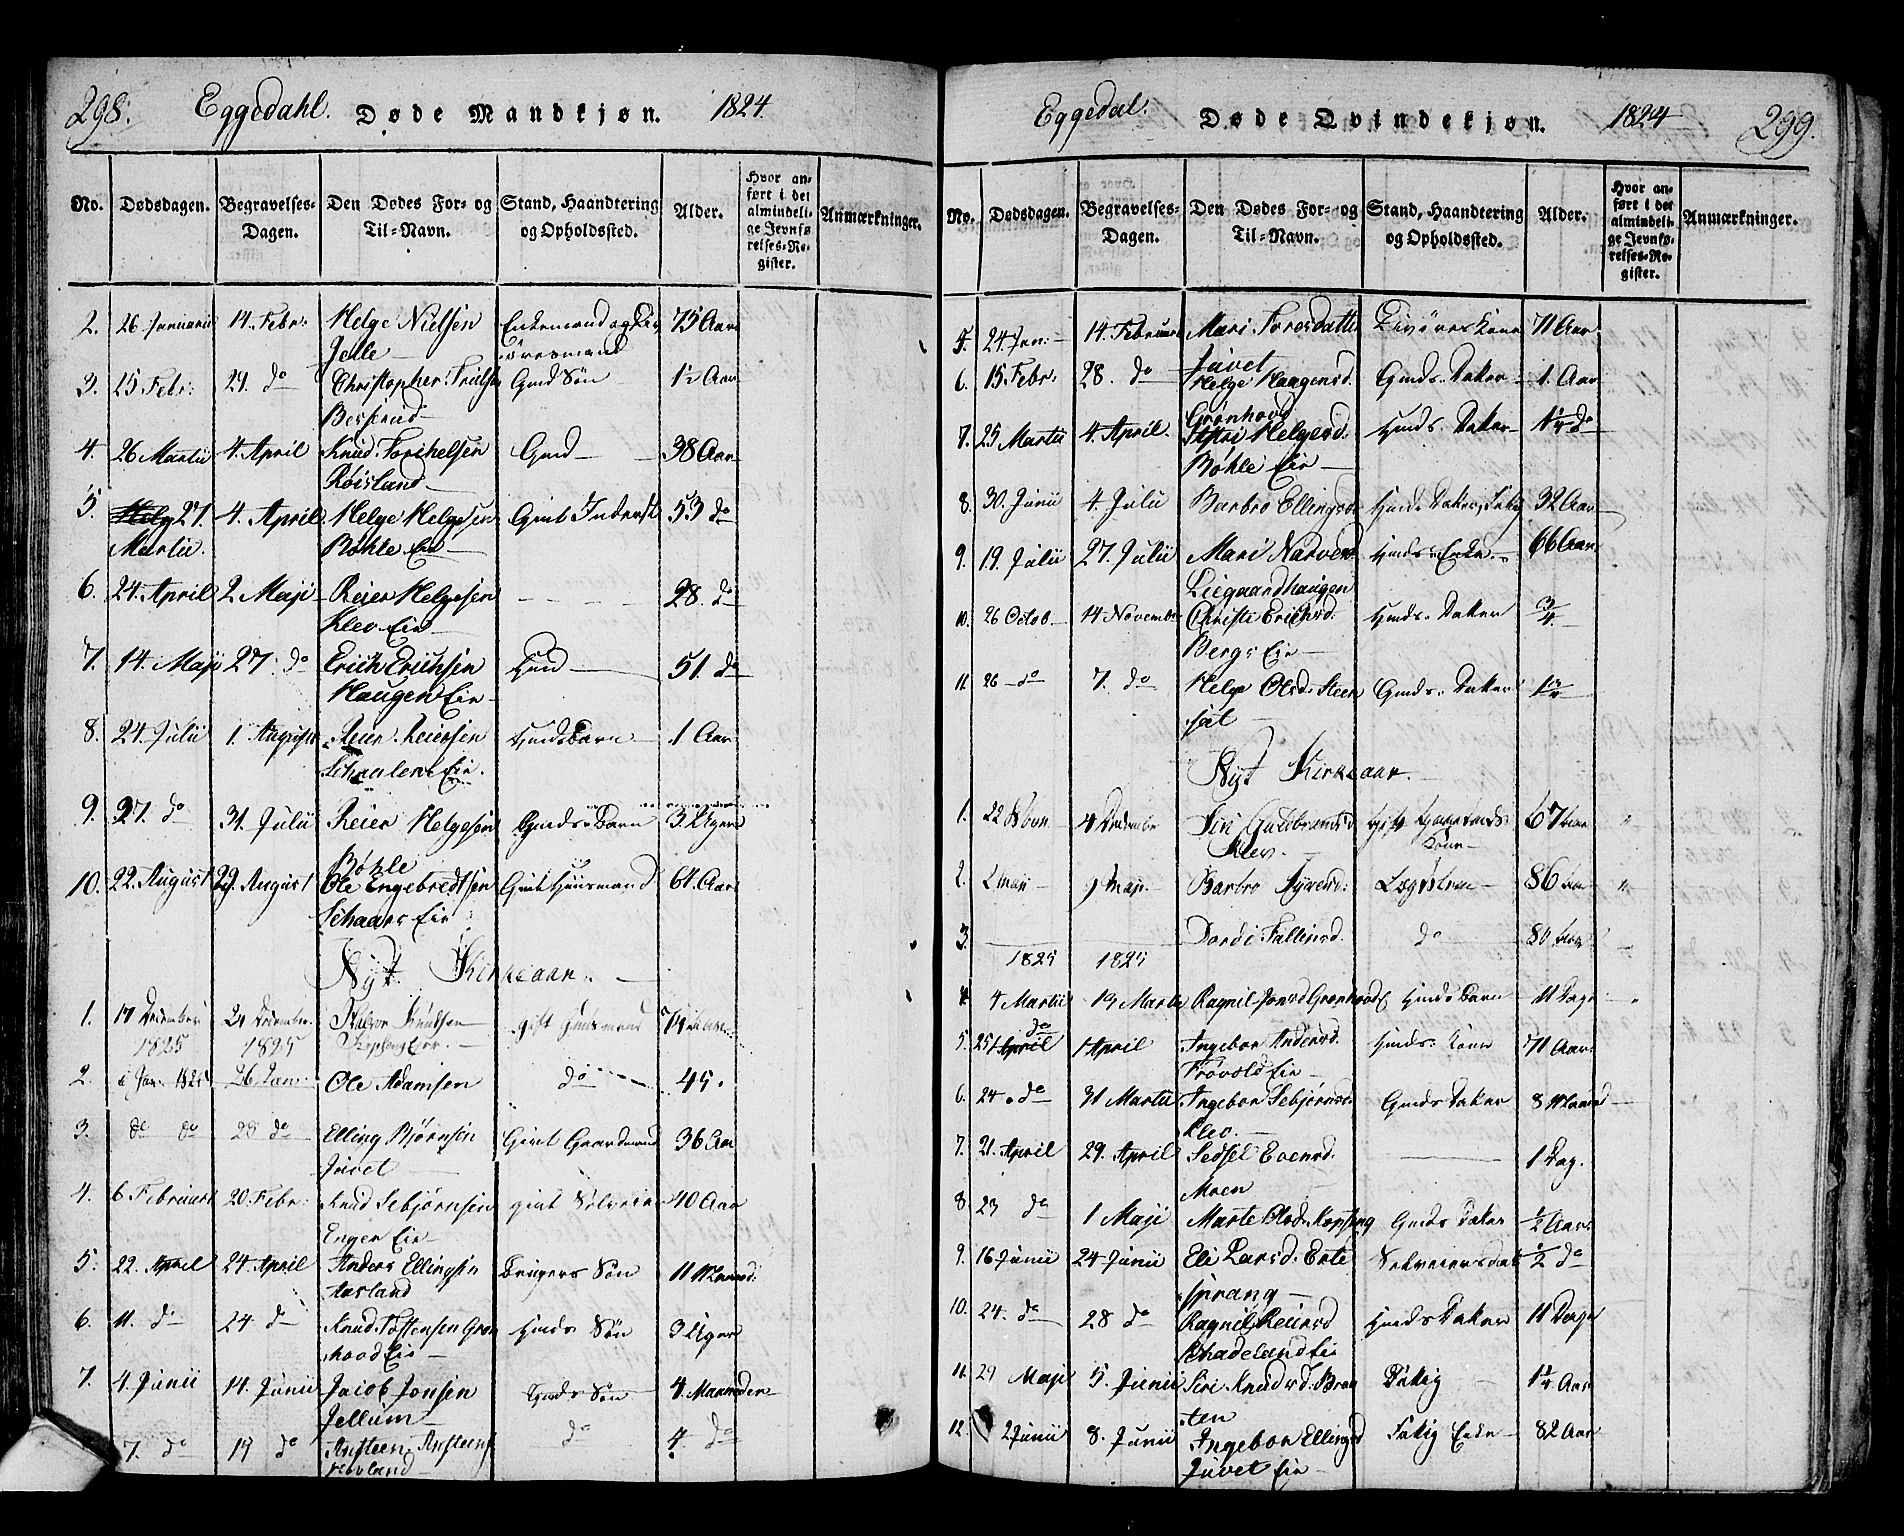 298. Eggedahl. Døde Mandkjøn. 1824.
No. Dødsdagen. Begravelses-Dagen. Den Dødes For- og Til-Navn. Stand, Haandtering og Opholdssted. Alder. Hvor anført i det almindelige Jevnførelses-Register. Anmærkninger.
2. 26 Januarii 14. Febr: Helge Nielsen Enkemand og 75 Aar
Jelle
3. 25 Febr: 29. do Christopher Gmd Søn 1½ Aar
4. 26 Martii 4. April Knud Gmd 38 Aar
Røisland
5. 27. 4. April Helge Helgesen Givt Inderst 53 do
Martii. Bøhle Eie
6. 24. April 2. Maji Reier Helgesen 28. do
Klev Eie
7. 14. Maji 27. do Erich Erichsen Hmd 51. do
Haugen Eie
8. 24. Julii 1. August Reier Reiersen Hmds Barn 1 Aar
Eie.
9. 27. do 31. Julii Reier Helgesen Gmds. Barn 3. Uger
Bøhle
10. 22. August 29. August Ole Engebredtsen Givt Huusmand 61. Aar
Eie
Nyt Kirkeaar.
1. 17 December 21 December Knudsen gift
1825 1825
2. Jan. 1825 26 Jan. Ole Adamsen do 45.
3. do do 28 do Elling Bjørnsen Givt Gaardmand 36 Aar
Juvet
4. 6 Februari 20. Febr. Knud Sebjørnsen givt 40 Aar
Enger Eie
5. 22. April 24. April Anders Ellingsen Brugers Søn 11 Maaned.
Aasland
6. 11. do 24 do Knud Hmds Søn 3 Uger
Eie
7. 4. Junii 14. Junii Jacob Jonsen Gmds Søn 4. Maaneder
Jellum
7. do 19 do Ansteen Ansteens do 4. do
Eggedal. Døde Qvindekjøn. 1824 299.
No. Dødsdagen. Begravelses-Dagen. Den Dødes For- og Til-Navn. Stand, Haandtering og Opholdssted. Alder. Hvor anført i det almindelige Jevnførelses-Register. Anmærkninger.
5. 24. Jan: 14. Februar Mari Toresdatter 71 Aar
Juvet
6. 15 Febr: 28. do Helge Haagensd. Gmds. Datter 1. Aar
Grønhovd
7. 25 Martii 4. April. Helgesd. Hmds. Datter 1¼ do
Bøhle Eie
8. 30. Junii 4. Julii Barbro Ellingsd. Hmds Datter, 32 Aar
9. 19. Julii 27. Julii Mari Narvesd. Hmds Enke. 66 Aar
10. 26 Octob. 14 November Christi Erichsd. Hmds. Datter ¾
Bergs Eie
11. 26 do 7. do Helge Olsd. Steen Gmds. Datter
sæt
Nyt Kirkeaar.
1. 22 4 December Siri Gulbrandsd. Gift 67 Aar "
Klev.
2. 2 Maji Maji Barbro Lægdslem 86 Aar "
3. Dordi do 80 Aar "
1825 1825
4. 4 Martii 13 Martii Ragnil Jonsd Grønhovd Hmds Barn 11 Dage "
5. 25 do 1 April Ingebor Andersd. Hmds. Kone 71 Aar
Eie
6. 24. do 31 Martii Ingebor Sebjørnsd. Gmds Datter 8 Maaned
Klev.
7. 21. April 29. April Sedsel Evensd. 1 Dag.
Moen
8. 23 do 1 Maji Marte Olsd. Kopseng Gmds Datter ½ Aar
9. 16 Junii 24 Junii Eli Larsd. Ente ½ do
sprang
10. 24. do 28 do Ragnil Reiersd Hmds Datter 11 Dage
Skadeland Eie
11. 29 Maji 5. Junii Siri Knudsd. Braa 1¼ Aar
ten
12. 2 Junii 8. Junii Ingebor Ellingsd Fattig Enke 82 Aar
Juvet Eie